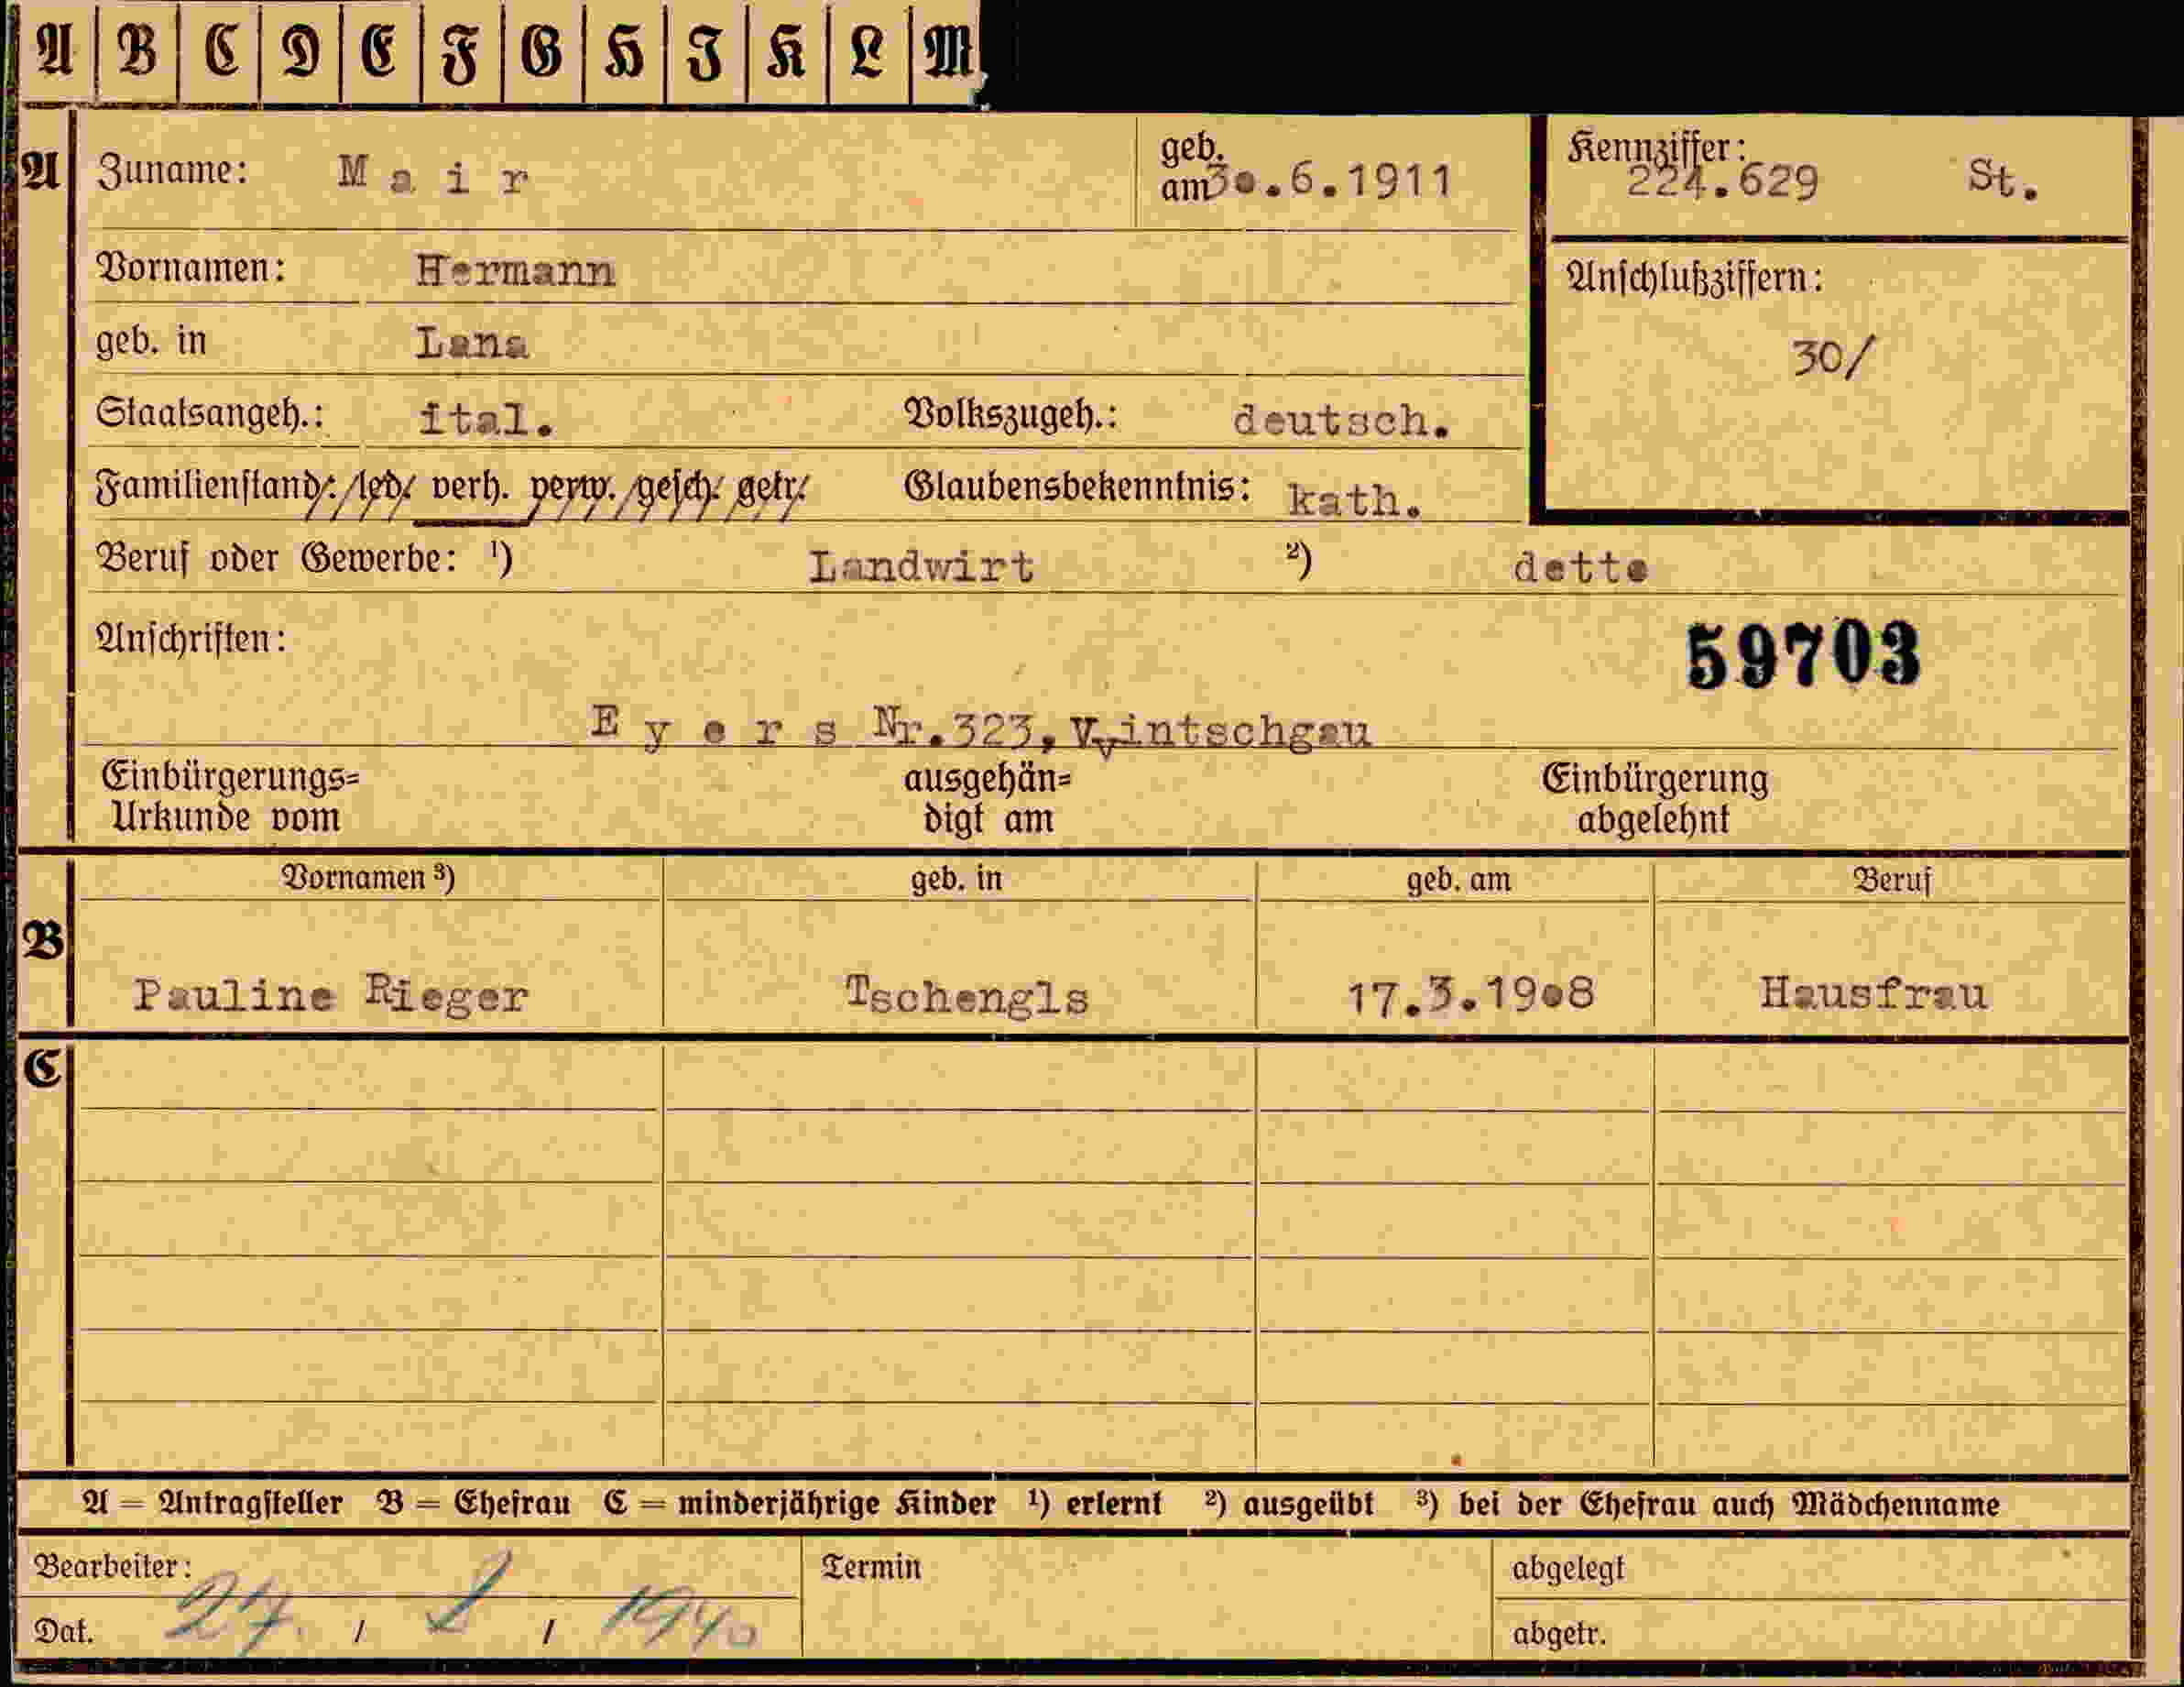 A B C D E F G H J K L M
A Zuname: Mair geb. am 30.6.1911 Kennziffer: 224.629 St.
Vornamen: Hermann Anschlußziffern:
geb. in Lana 30/
Staatsangeh.: ital. Volkszugeh.: deutsch.
Familienstand: led. verh. verw. gesch. getr. Glaubensbekenntnis: kath.
Beruf oder Gewerbe: ¹) Landwirt ²) detto
Anschriften: 59703
Eyers Nr.323, Vintschgau
Einbürgerungs= ausgehän= Einbürgerung
Urkunde vom digt am abgelehnt
Vornamen ³) geb. in geb. am Beruf
B Pauline Rieger Tschengls 17.3.1908 Hausfrau
C
A = Antragsteller B = Ehefrau C = minderjährige Kinder ¹) erlernt ²) ausgeübt ³) bei der Ehefrau auch Mädchenname
Bearbeiter: Termin abgelegt
Dat. 27. / 2 / 1940 abgetr.